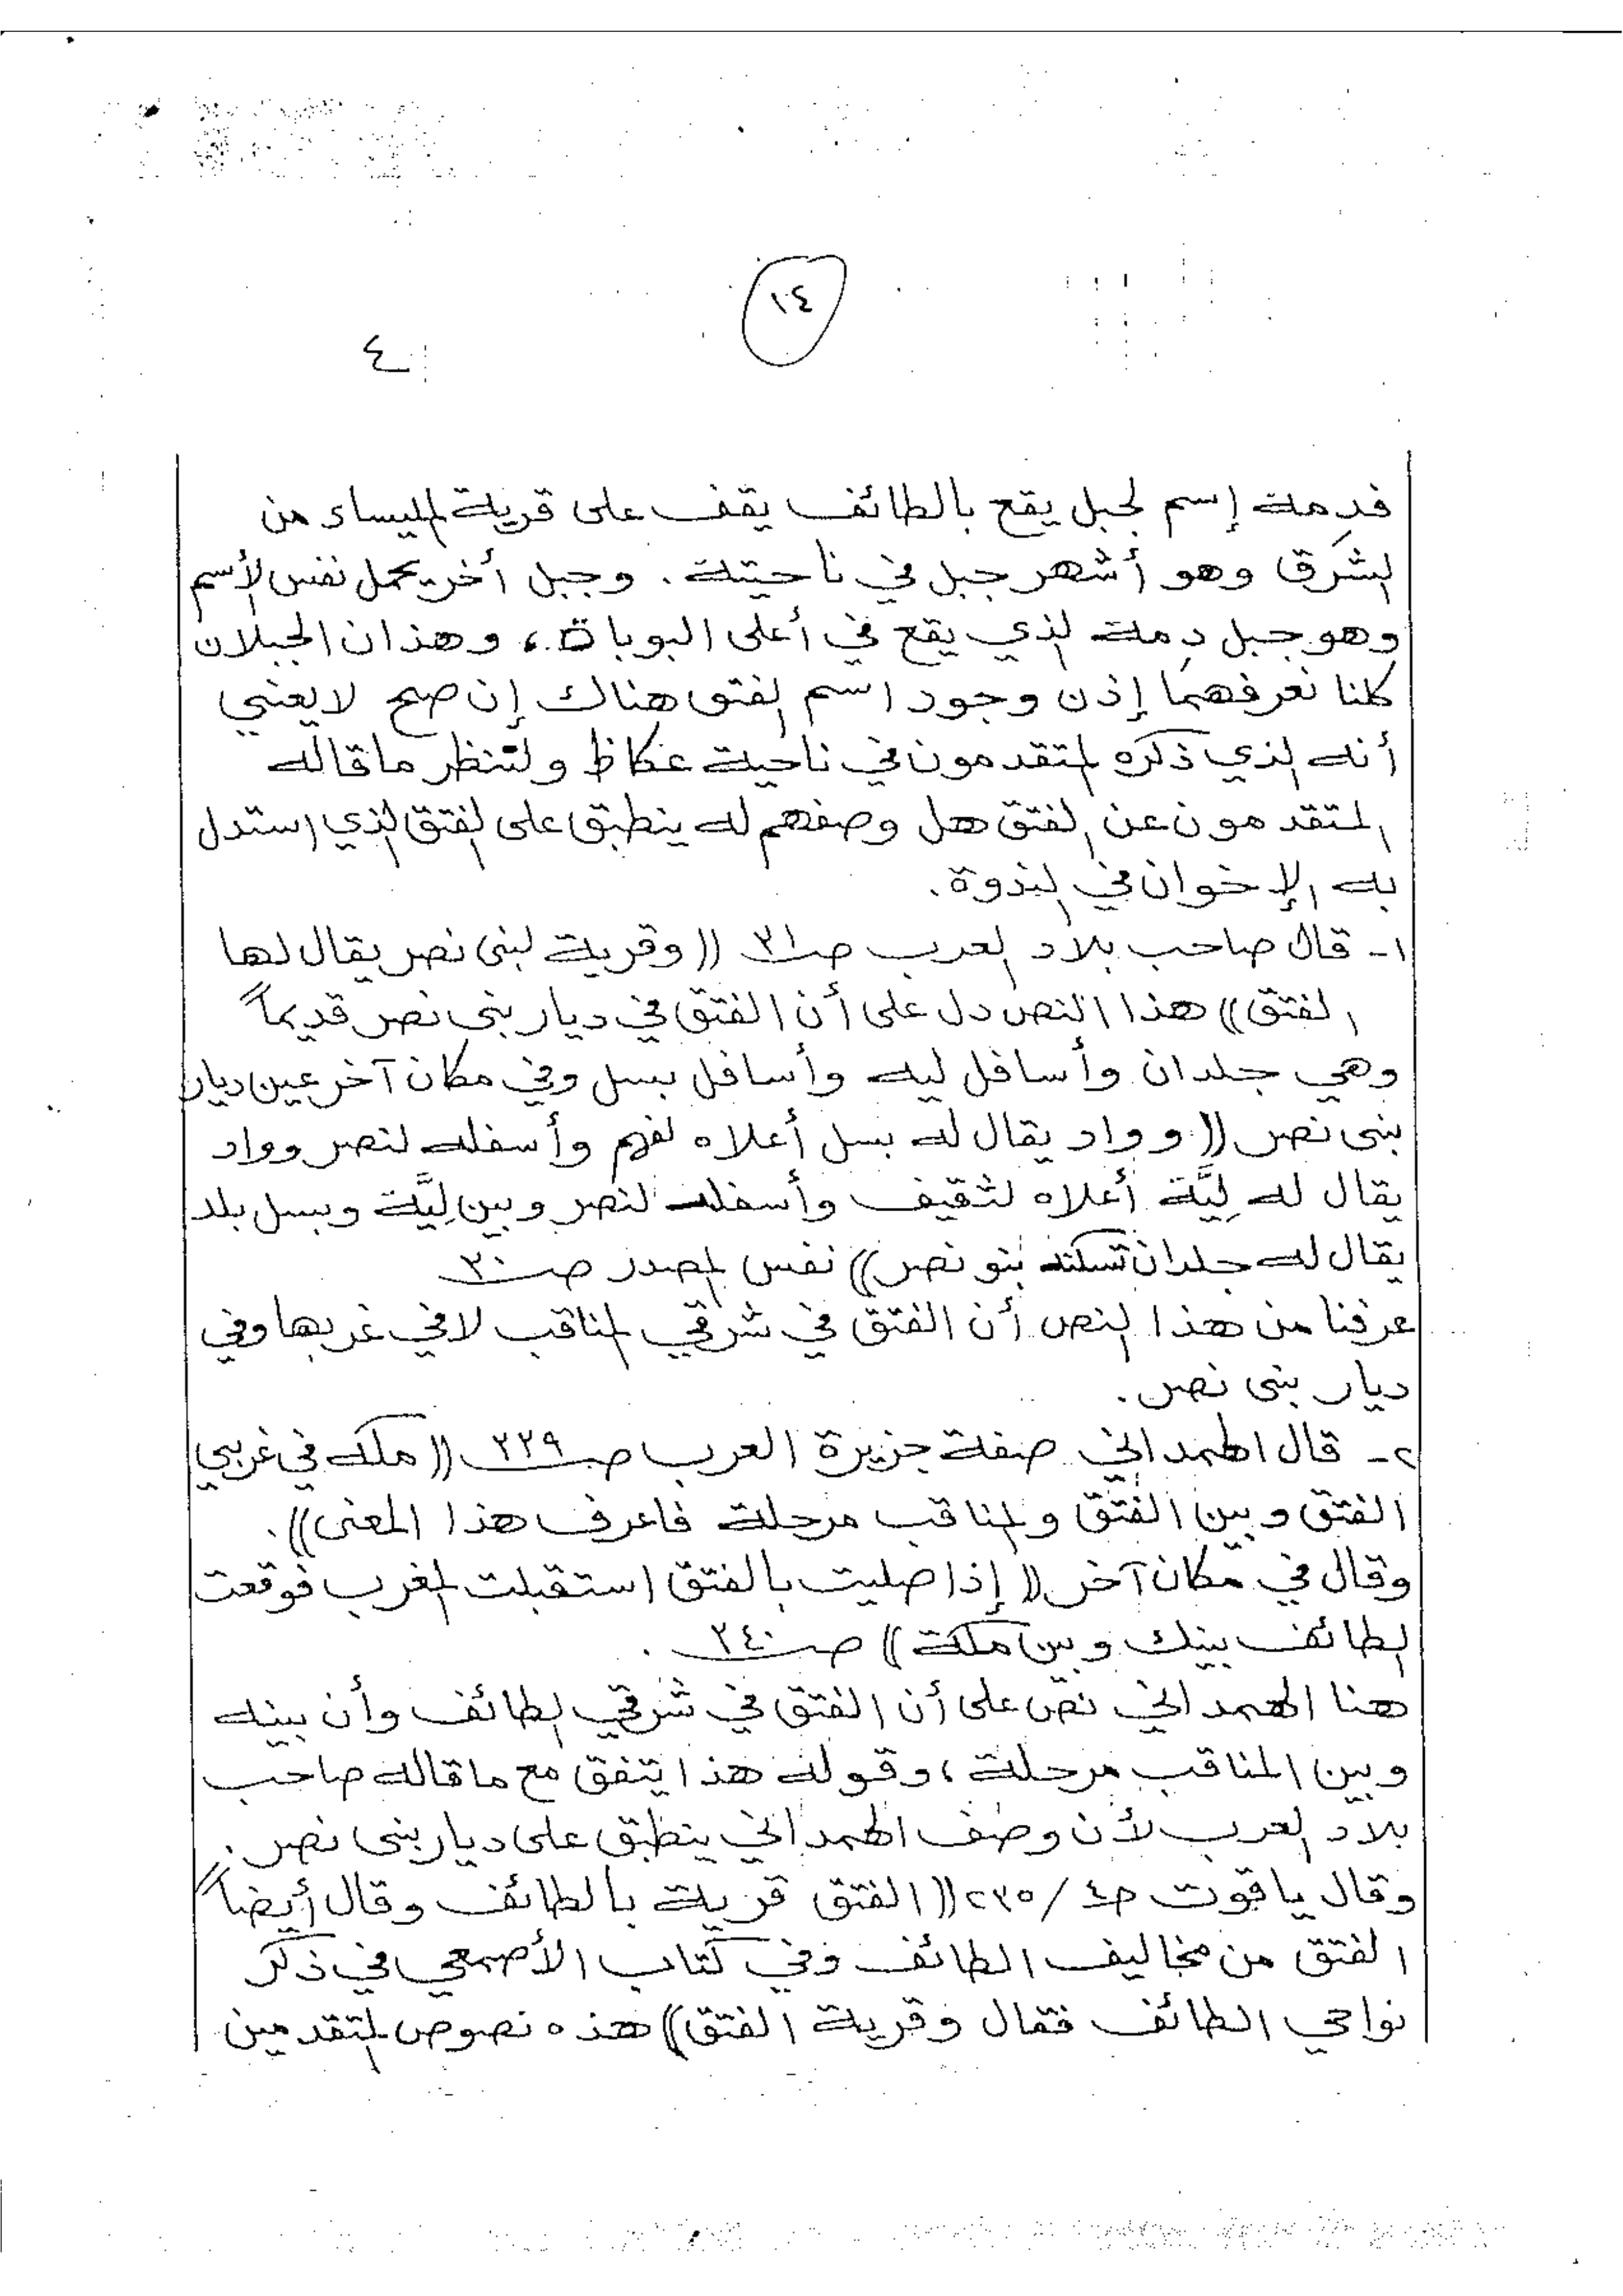 ١٤
٤
فدِمة إسم لجبل يقع بالطائف يقف على قرية المليساء من
الشرق وهو أشهر جبل في ناحيتة. وجبل أخر يحمل نفس الأسم
وهو جبل دِمة الذي يقع في أعلى البوباة، وهذان الجبلان
كلنا نعرفهما إذن وجود اسم الفتق هناك إن صح لا يعني
أنه الذي ذكره المتقدمون في ناحية عكاظ ولننظر ماقاله
المتقدمون عن الفتق هل وصفهم له ينطبق على الفتق الذي استدل
به الإخوان في الندوة.
١- قال صاحب بلاد العرب صـ٣١ ((وقرية لبنى نصر يقال لها
الفتق)) هذا النص دل على أن الفتق في ديار بنى نصر قديماً
وهي جلدان وأسافل ليه وأسافل بسل وفي مكان آخر عين ديار
بنى نصر ((وواد يقال له بسل أعلاه لفهم وأسفله لنصر وواد
يقال له لِيَّة أعلاه لثقيف وأسفله لنصر وبين لِيَّة وبسل بلد
يقال له جلدان تسكنه بنو نصر)) نفس المصدر صـ٣٠
عرفنا من هذا النص أن الفتق في شرقي المناقب لا في غربها وفي
ديار بنى نصر.
٢- قال الهمداني صفة جزيرة العرب صـ٣٣٩ ((مكه في غربي
الفتق وبين الفتق والمناقب مرحلة فاعرف هذا المعنى)).
وقال في مكان آخر ((إذا صليت بالفتق استقبلت المغرب فوقعت
الطائف بينك وبين مكة)) صـ٣٤٠.
هنا الهمداني نص على أن الفتق في شرقي الطائف وأن بينه
وبين المناقب مرحلة، وقوله هذا يتفق مع ماقاله صاحب
بلاد العرب لأن وصف الهمداني ينطبق على ديار بنى نصر.
وقال ياقوت جـ٤/٢٣٥ ((الفتق قرية بالطائف وقال أيضاً
الفتق من مخاليف الطائف وفي كتاب الأصمعي في ذكر
نواحي الطائف فقال وقرية الفتق)) هذه نصوص المتقدمين